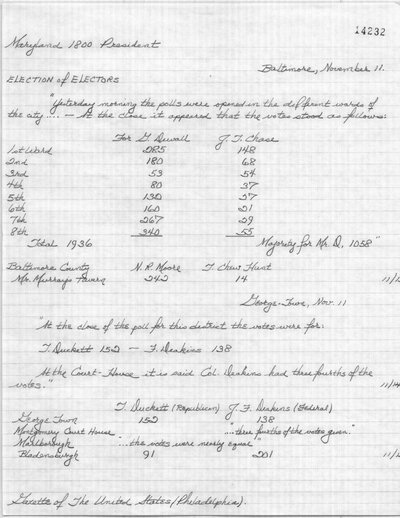 14232
Maryland 1800 President
Baltimore, November 11.
ELECTION of ELECTORS
"Yesterday morning the polls were opened in the different wards of
the city .... — At the close it appeared that the votes stood as follows:
For G. Duvall J. T. Chase
1st Ward 285 148
2nd 180 68
3rd 53 54
4th 80 37
5th 130 37
6th 160 21
7th 267 29
8th 340 55
Total 1936 Majority for Mr. D. 1058"
Baltimore County N. R. Moore T. Chew Hunt
Mr. Murray's Tavern 242 14 11/12
George-Town, Nov. 11
"At the close of the poll for this district the votes were for:
T. Duckett 152 — F. Deakins 138
At the Court-House it is said Col. Deakins had three fourths of the
votes." 11/14
T. Duckett (Republican) F. Deakins (Federal)
George Town 152 138
Montgomery Court House "...three fourths of the votes given."
Marlborough "...the votes were nearly equal"
Bladensburgh 91 201
Gazette of The United States (Philadelphia).